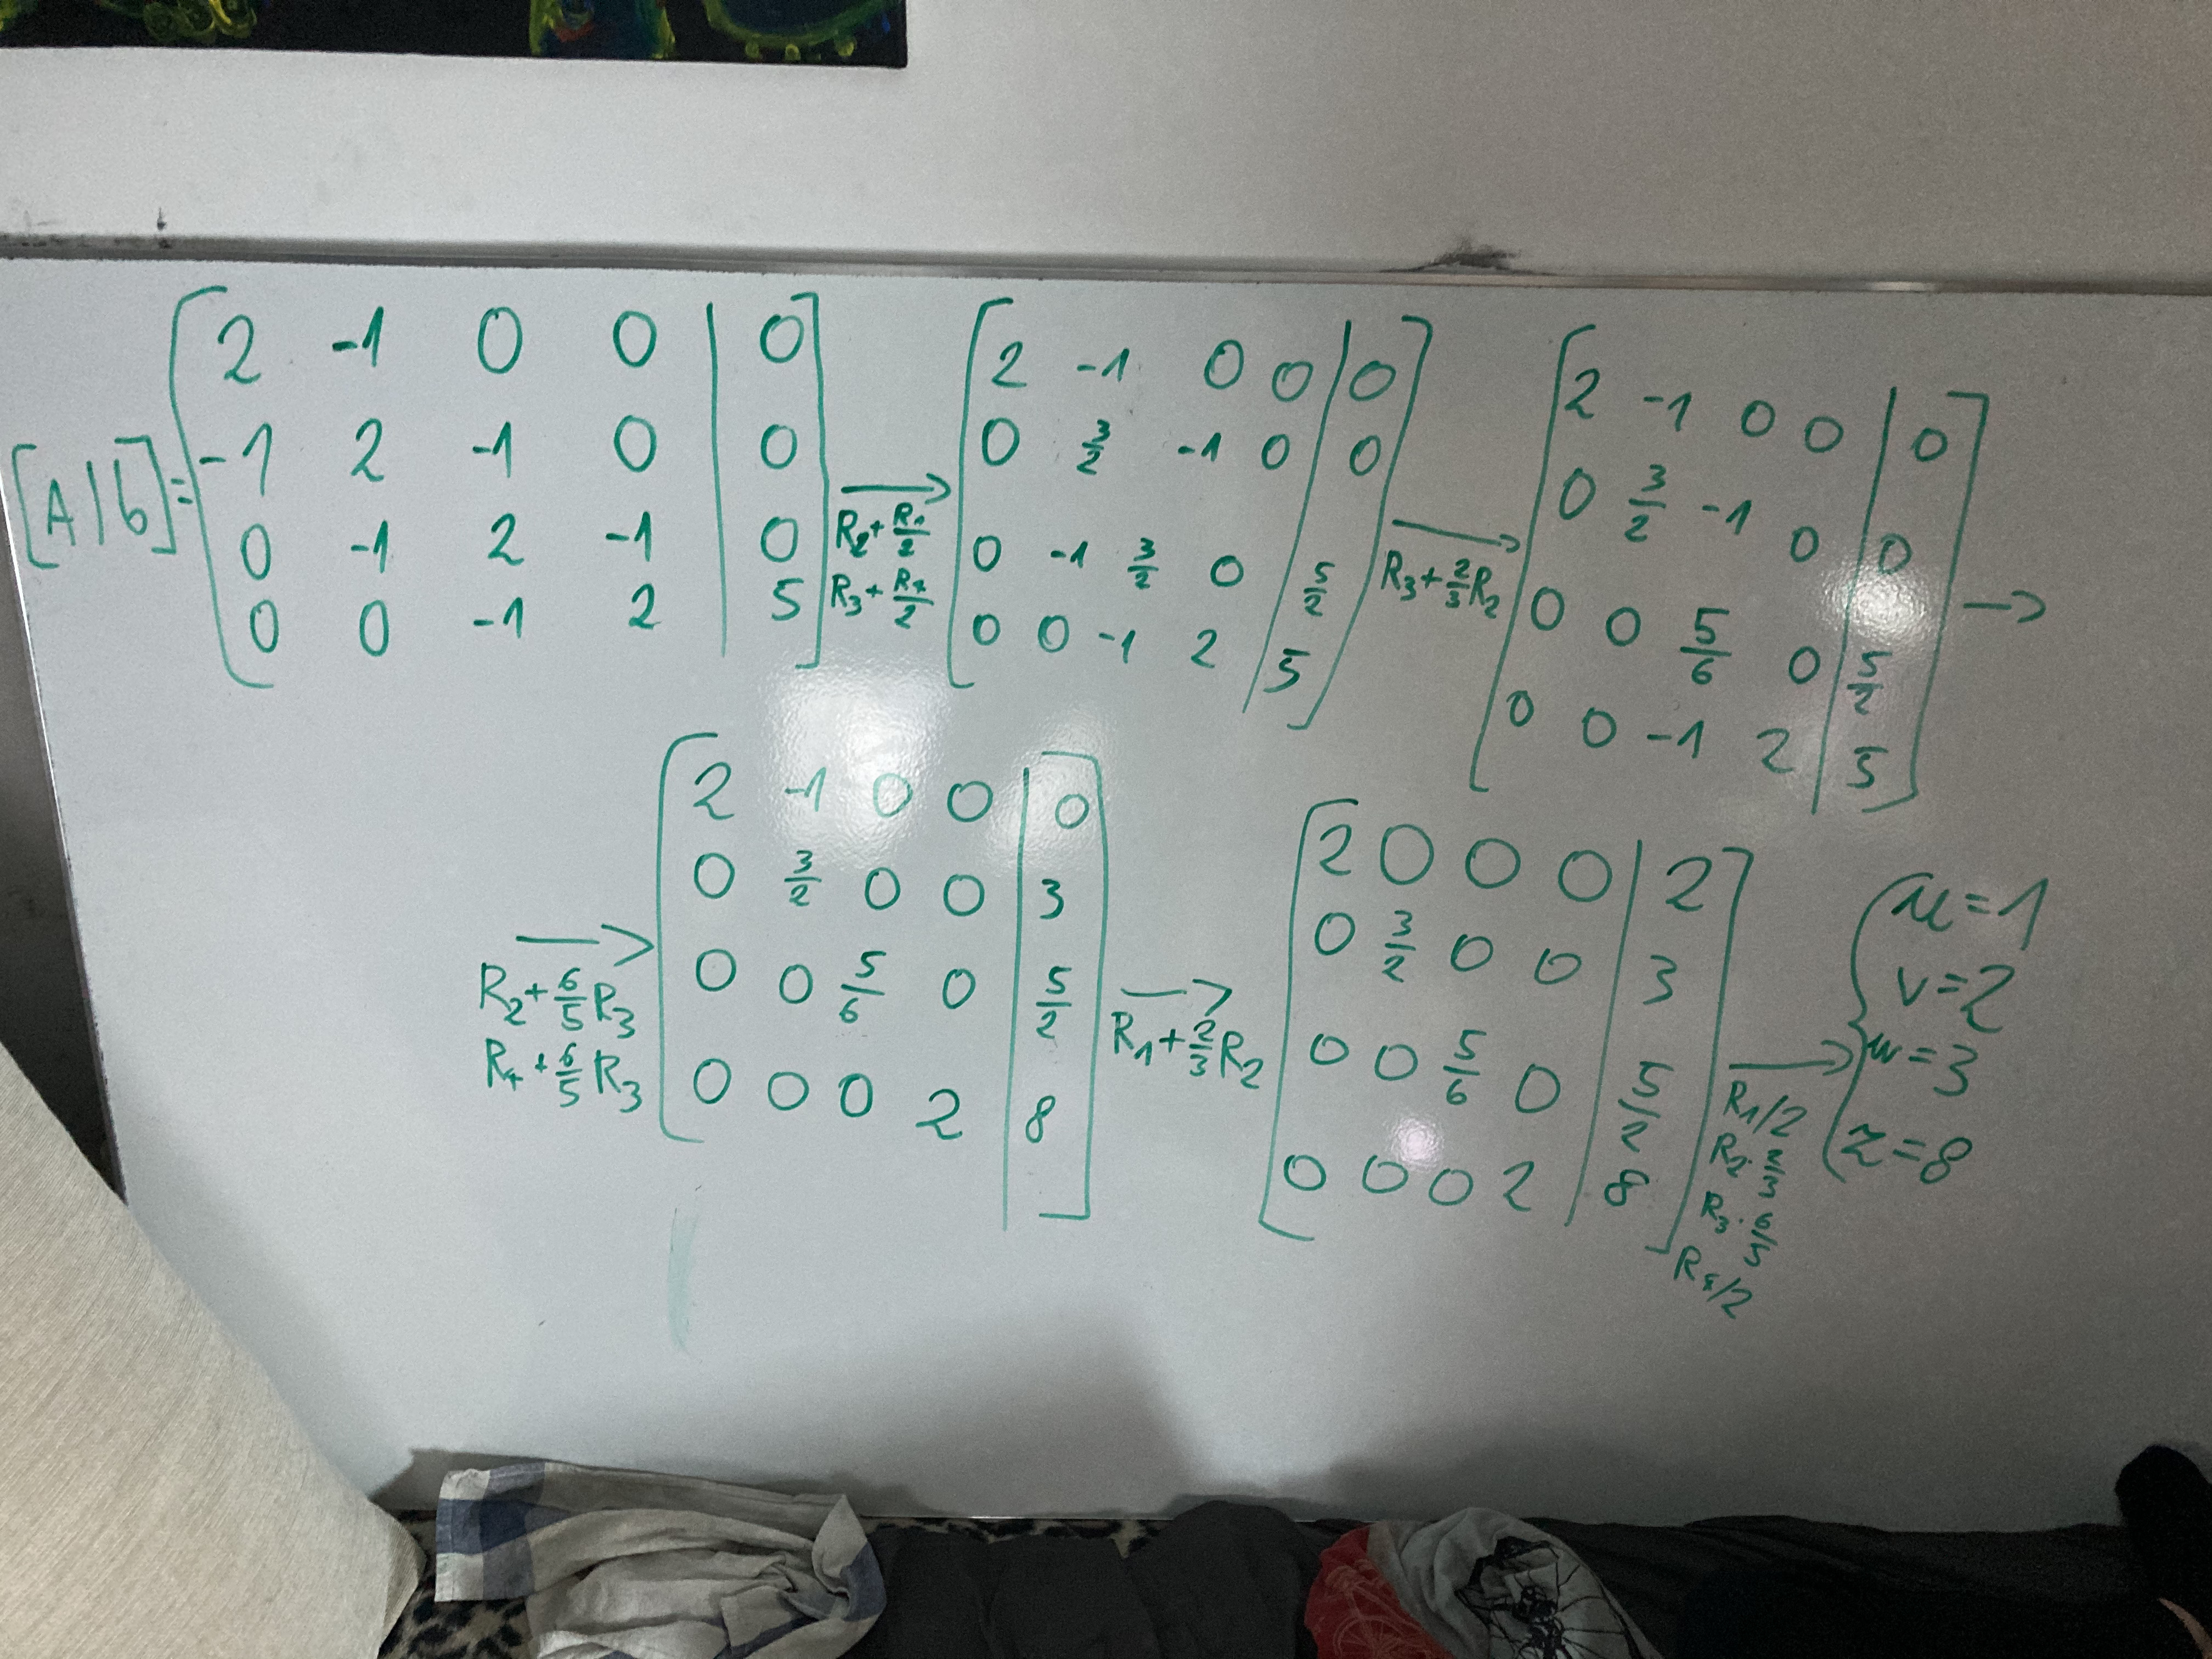 [A|b] = [2 -1 0 0 | 0]
[-1 2 -1 0 | 0]
[0 -1 2 -1 | 0]
[0 0 -1 2 | 5]
→ R₂+R₁/2
R₃+R₄/2
[2 -1 0 0 | 0]
[0 3/2 -1 0 | 0]
[0 -1 3/2 0 | 5/2]
[0 0 -1 2 | 5]
→ R₃+2/3R₂
[2 -1 0 0 | 0]
[0 3/2 -1 0 | 0]
[0 0 5/6 0 | 5/2]
[0 0 -1 2 | 5]
→
→ R₂+6/5R₃
R₄+6/5R₃
[2 -1 0 0 | 0]
[0 3/2 0 0 | 3]
[0 0 5/6 0 | 5/2]
[0 0 0 2 | 8]
→ R₁+2/3R₂
[2 0 0 0 | 2]
[0 3/2 0 0 | 3]
[0 0 5/6 0 | 5/2]
[0 0 0 2 | 8]
→ R₁/2
R₂·2/3
R₃·6/5
R₄/2
{ u=1
v=2
w=3
z=8